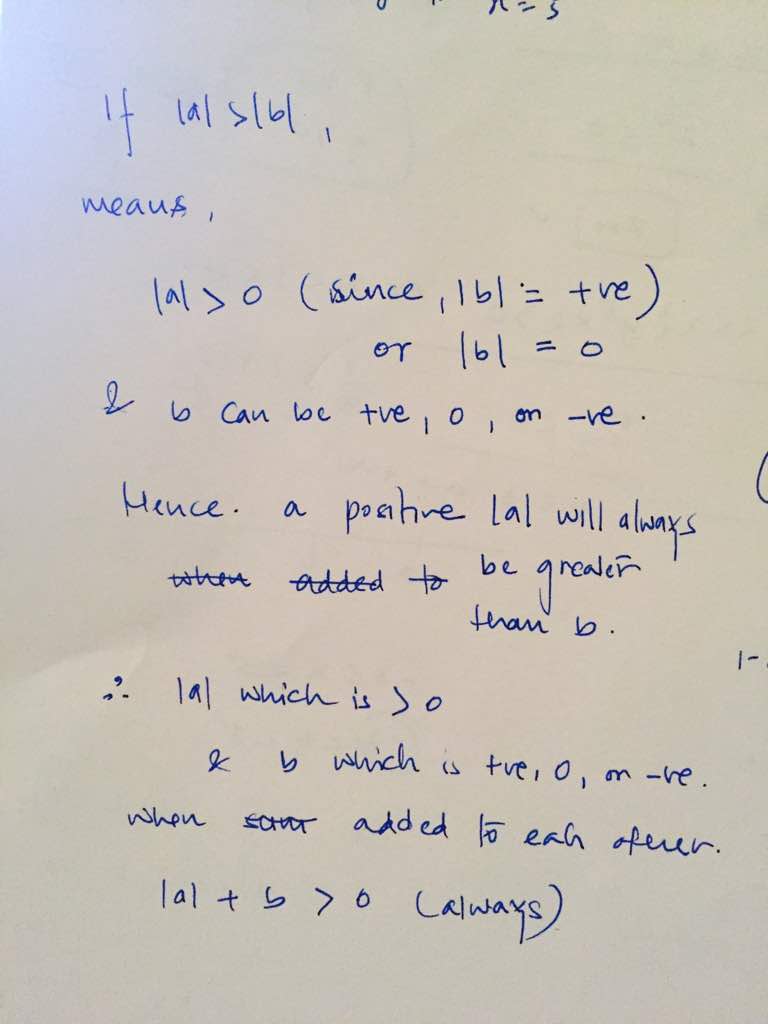 x = 5
If |a| > |b| ,
means ,
|a| > 0 ( since , |b| = +ve )
or |b| = 0
& b can be +ve , 0 , or -ve .
Hence . a positive |a| will always
when added to be greater
than b .
∴ |a| which is > 0
& b which is +ve , 0 , or -ve .
when added to each other .
|a| + b > 0 (always)
1-